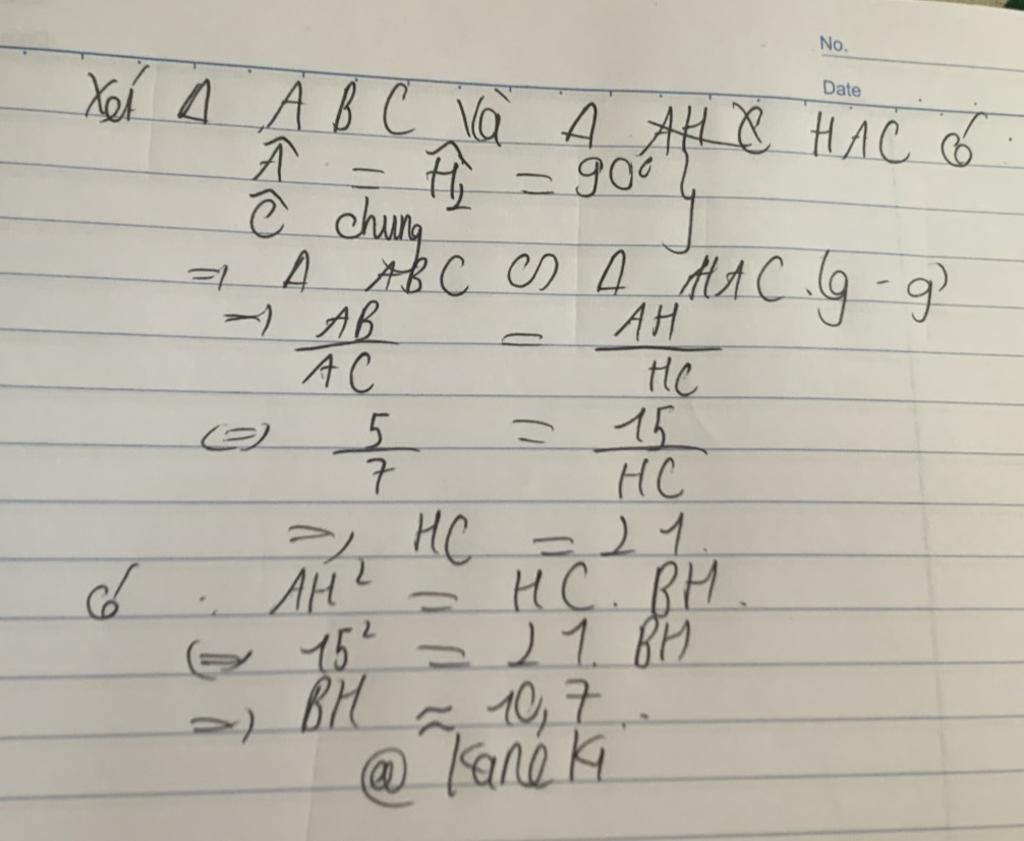 No.
Date
Xét Δ ABC và Δ AHC HAC có
Â = Ĥ₂ = 90°
Ĉ chung
=> Δ ABC ∽ Δ HAC (g - g)
=> AB/AC = AH/HC
<=> 5/7 = 15/HC
=> HC = 21
có : AH² = HC. BH.
<=> 15² = 21. BH
=> BH ≈ 10,7..
@ Kaneki